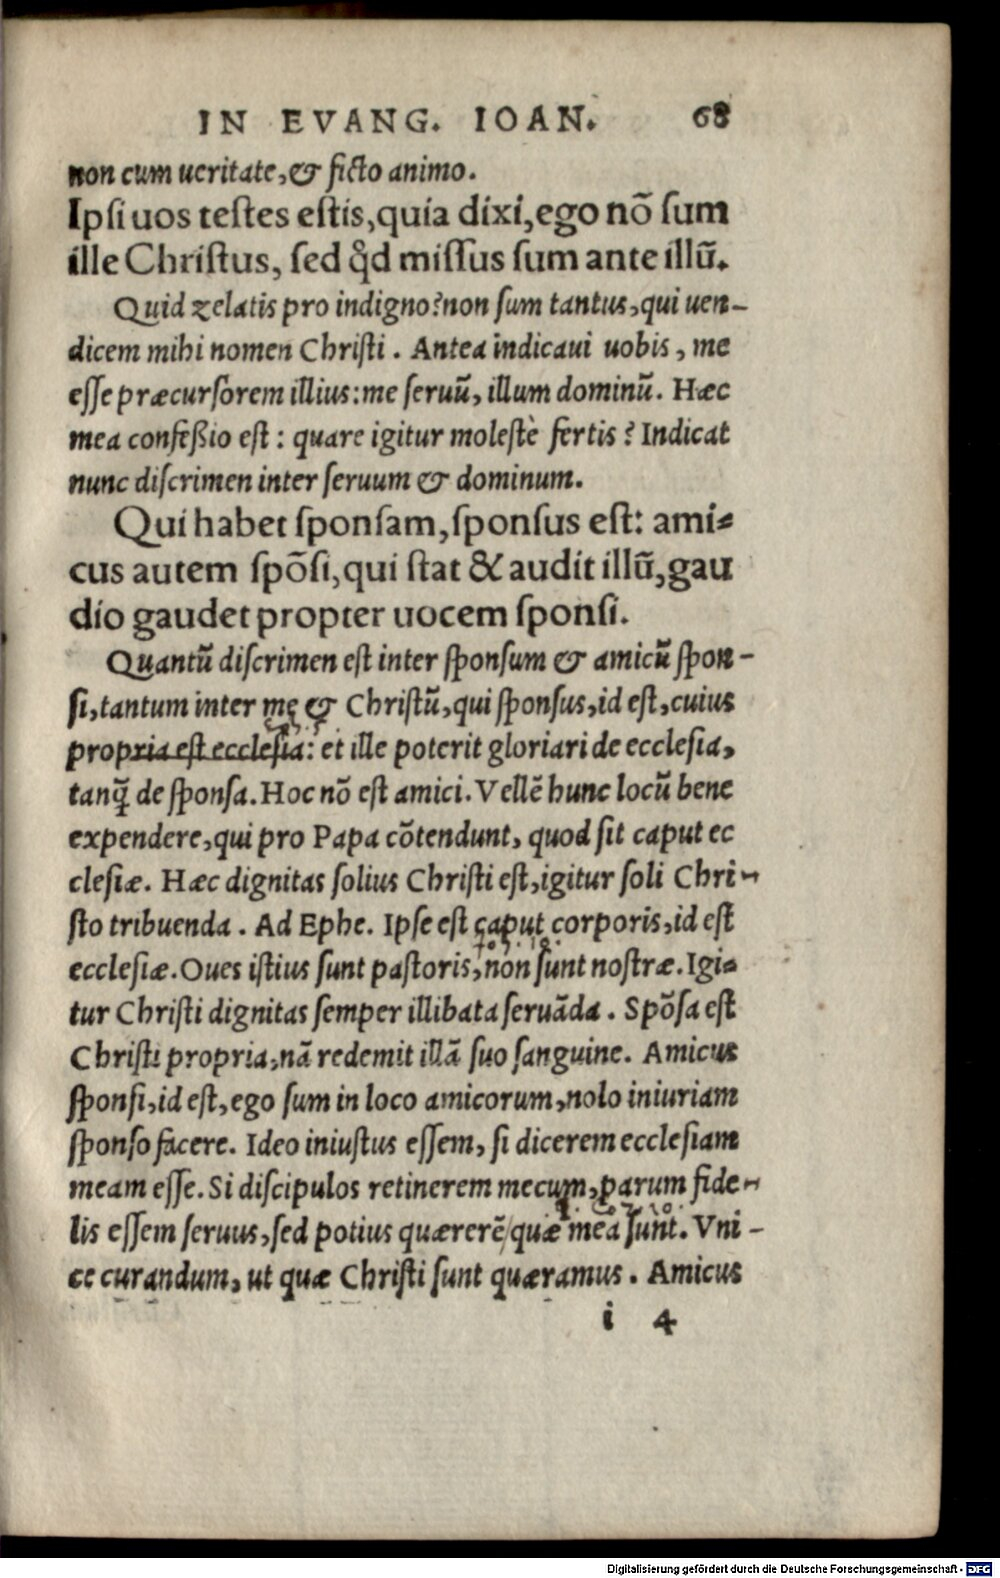 IN EVANG. IOAN. 68
non cum ueritate, & ficto animo.
Ipsi uos testes estis, quia dixi, ego nõ sum
ille Christus, sed qd̉ missus sum ante illũ.
Quid zelatis pro indigno? non sum tantus, qui uen-
dicem mihi nomen Christi. Antea indicaui uobis, me
esse præcursorem illius: me seruũ, illum dominũ. Hæc
mea confeßio est: quare igitur molestè fertis? Indicat
nunc discrimen inter seruum & dominum.
Qui habet sponsam, sponsus est: ami-
cus autem spõsi, qui stat & audit illũ, gau
dio gaudet propter uocem sponsi.
Quantũ discrimen est inter sponsum & amicũ spon-
si, tantum inter me & Christũ, qui sponsus, id est, cuius
propria est ecclesia: et ille poterit gloriari de ecclesia,
tanq̃ de sponsa. Hoc nõ est amici. Vellẽ hunc locũ bene
expendere, qui pro Papa cõtendunt, quod sit caput ec
clesiæ. Hæc dignitas solius Christi est, igitur soli Chri-
sto tribuenda. Ad Ephe. Ipse est caput corporis, id est
ecclesiæ. Oues istius sunt pastoris, non sunt nostræ. Igi-
tur Christi dignitas semper illibata seruãda. Spõsa est
Christi propria, nã redemit illã suo sanguine. Amicus
sponsi, id est, ego sum in loco amicorum, nolo iniuriam
sponso facere. Ideo iniustus essem, si dicerem ecclesiam
meam esse. Si discipulos retinerem mecum, parum fide-
lis essem seruus, sed potius quærerẽ/quæ mea sunt. Vni-
ce curandum, ut quæ Christi sunt quæramus. Amicus
i 4
Digitalisierung gefördert durch die Deutsche Forschungsgemeinschaft - DFG